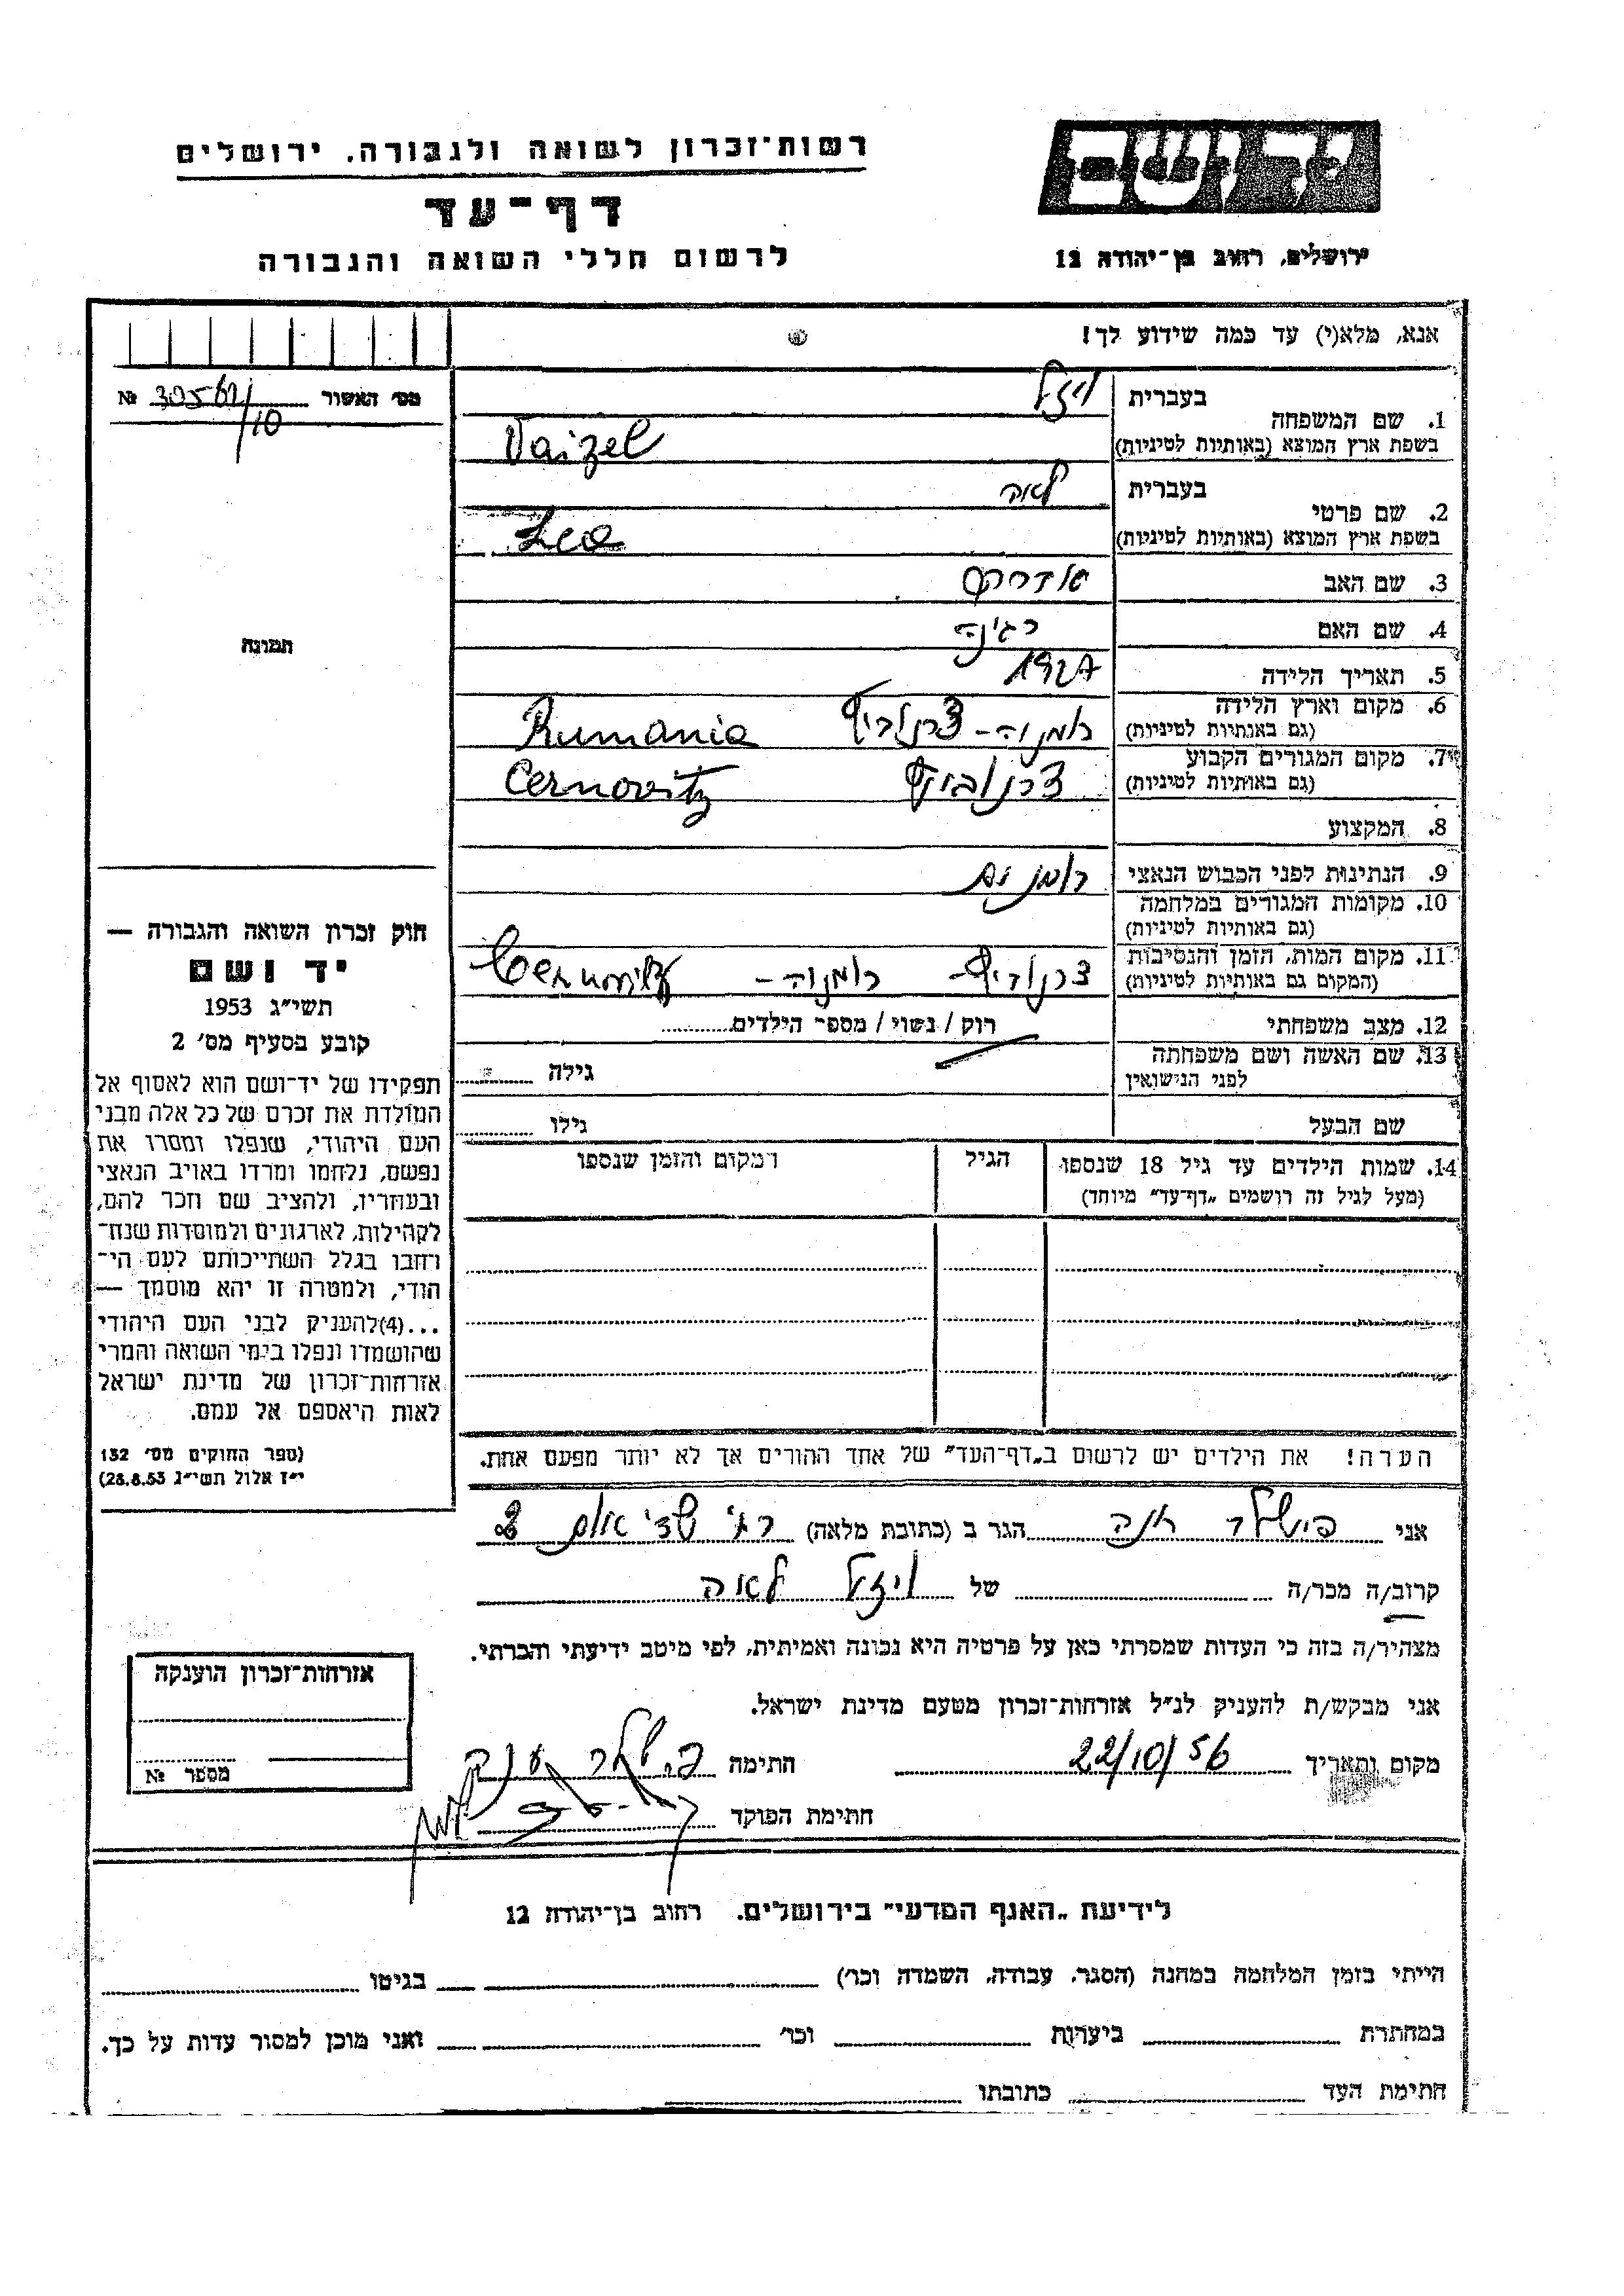 רשות־זכרון לשואה ולגבורה, ירושלים
דף־עד
לרשום חללי השואה והגבורה
יד ושם
ירושלים, רחוב בן־יהודה 12
אנא, מלא(י) עד כמה שידוע לך!
מס׳ האשור № 30561/10
1. שם המשפחה בעברית ויזל
בשפת ארץ המוצא (באותיות לטיניות) Vaizel
2. שם פרטי בעברית לאה
בשפת ארץ המוצא (באותיות לטיניות) Lea
3. שם האב
4. שם האם רגינה
5. תאריך הלידה 1927
6. מקום וארץ הלידה
(גם באותיות לטיניות) רומניה - צרנוביץ Rumania
7. מקום המגורים הקבוע
(גם באותיות לטיניות) צרנוביץ Cernovitz
8. המקצוע
9. הנתינות לפני הכבוש הנאצי
10. מקומות המגורים במלחמה
(גם באותיות לטיניות)
11. מקום המות, הזמן והנסיבות
(המקום גם באותיות לטיניות) צרנוביץ - רומניה - Cernovitz
12. מצב משפחתי רוק / נשוי / מספר הילדים
13. שם האשה ושם משפחתה
לפני הנישואין גילה
שם הבעל גילו
14. שמות הילדים עד גיל 18 שנספו הגיל המקום והזמן שנספו
(מעל לגיל זה רושמים „דף־עד" מיוחד)
הערה! את הילדים יש לרשום ב„דף־העד" של אחד ההורים אך לא יותר מפעם אחת.
תמונה
חוק זכרון השואה והגבורה —
יד ושם
תשי״ג 1953
קובע בסעיף מס׳ 2
תפקידו של יד־ושם הוא לאסוף אל
המולדת את זכרם של כל אלה מבני
העם היהודי, שנפלו ומסרו את
נפשם, נלחמו ומרדו באויב הנאצי
ובעוזריו, ולהציב שם וזכר להם,
לקהילות, לארגונים ולמוסדות שנח־
רבו בגלל השתייכותם לעם הי־
הודי, ולמטרה זו יהא מוסמך —
...(4)להעניק לבני העם היהודי
שהושמדו ונפלו בימי השואה והמרי
אזרחות־זכרון של מדינת ישראל
לאות היאספם אל עמם.
(ספר החוקים מס׳ 132
י״ז אלול תשי״ג 28.8.53)
אני פישלר חנה הגר ב (כתובת מלאה)
קרוב/ה מכר/ה של ויזל לאה
מצהיר/ה בזה כי העדות שמסרתי כאן על פרטיה היא נכונה ואמיתית, לפי מיטב ידיעתי והכרתי.
אני מבקש/ת להעניק לנ״ל אזרחות־זכרון מטעם מדינת ישראל.
מקום ותאריך 22/10/56 חתימה
חתימת הפוקד
אזרחות־זכרון הוענקה
מספר №
לידיעת „האגף המדעי" בירושלים, רחוב בן־יהודה 12
הייתי בזמן המלחמה במחנה (הסגר, עבודה, השמדה וכו׳) בגיטו
במחתרת ביערות וכו׳ ואני מוכן למסור עדות על כך.
חתימת העד כתובתו